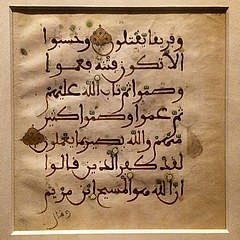 وفريقا يقتلون وحسبوا
ألا تكون فتنة فعموا
وصموا ثم تاب الله عليهم
ثم عموا وصموا كثير
منهم والله بصير بما يعملون
لقد كفر الذين قالوا
إن الله هو المسيح ابن مريم